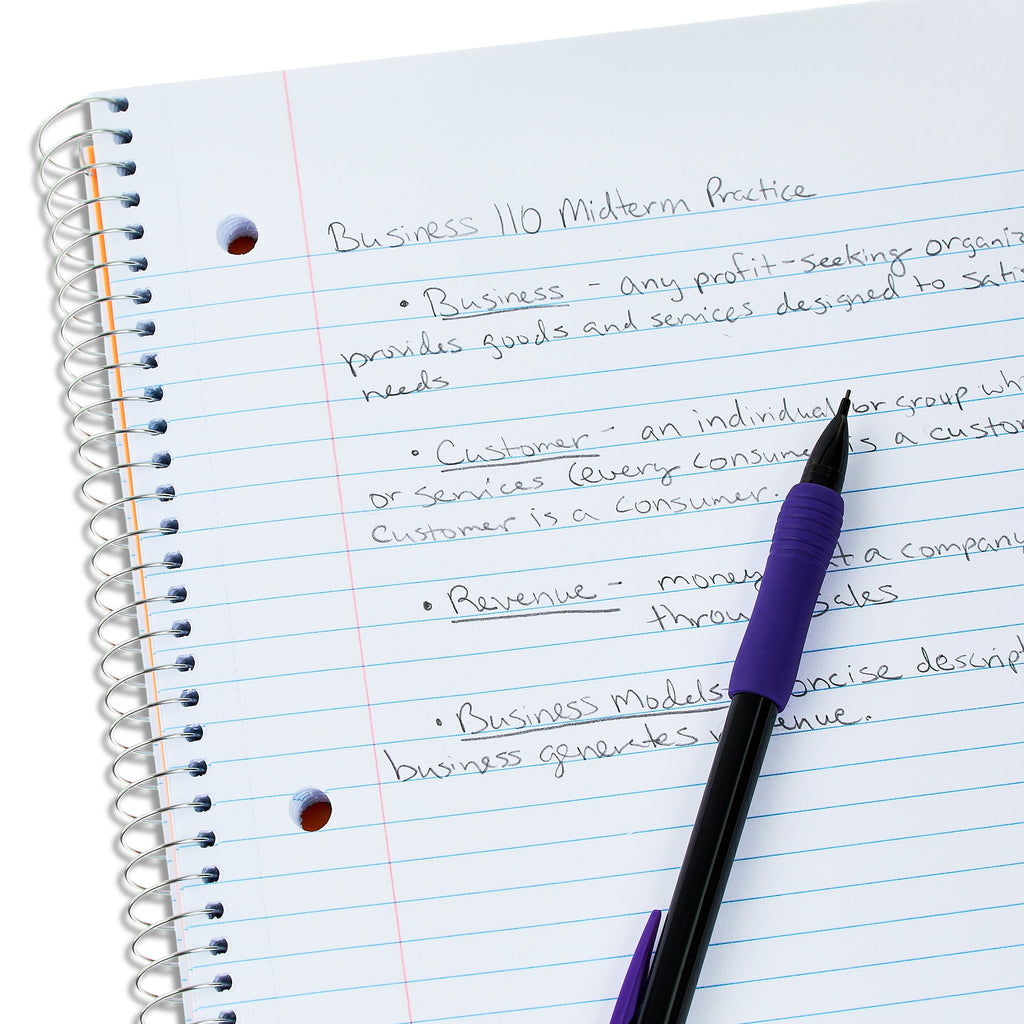 Business 110 Midterm Practice
• Business - any profit-seeking
provides goods and services designed to
needs
• Customer - an individual or group
or services (every is a
customer is a consumer.
• Revenue - money a company
sales
• Business Models-
business generates